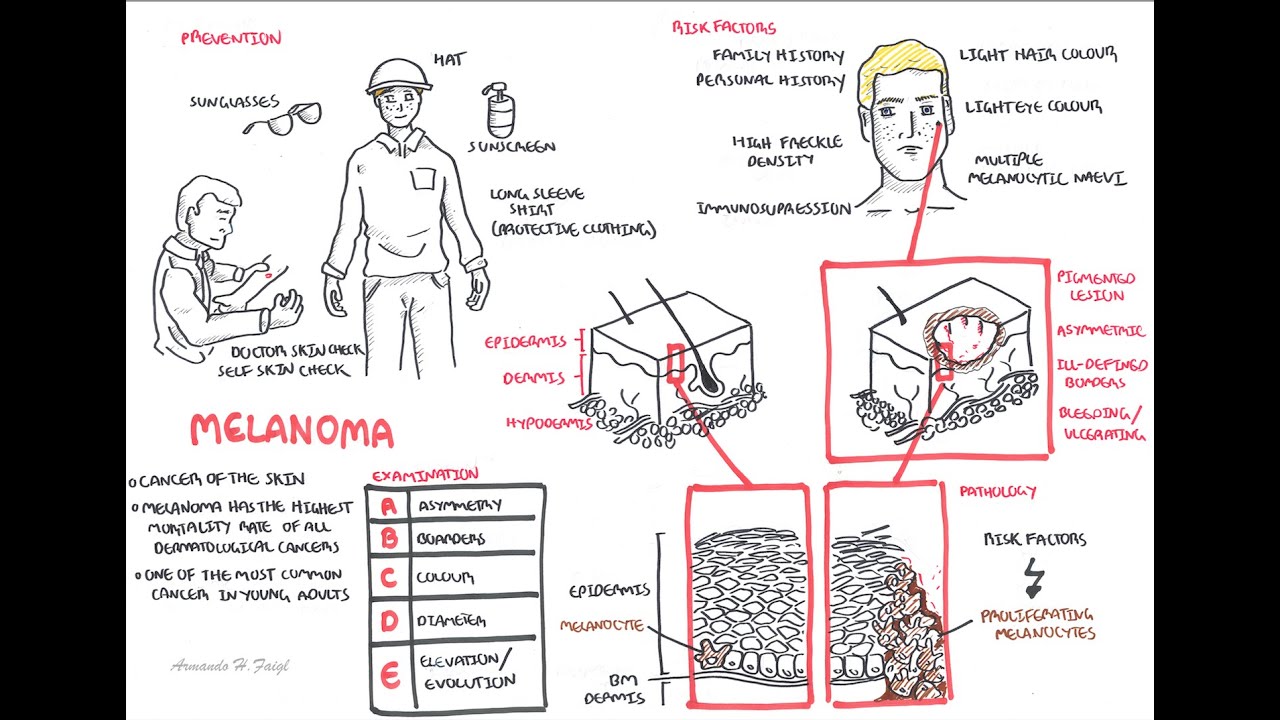 PREVENTION
HAT
SUNGLASSES
SUNSCREEN
LONG SLEEVE
SHIRT
(PROTECTIVE CLOTHING)
DOCTOR SKIN CHECK
SELF SKIN CHECK
RISK FACTORS
FAMILY HISTORY
PERSONAL HISTORY
HIGH FRECKLE
DENSITY
IMMUNOSUPRESSION
LIGHT HAIR COLOUR
LIGHT EYE COLOUR
MULTIPLE
MELANOCYTIC NAEVI
EPIDERMIS
DERMIS
HYPODERMIS
PIGMENTED
LESION
ASYMMETRIC
ILL-DEFINED
BORDERS
BLEEDING/
ULCERATING
MELANOMA
CANCER OF THE SKIN
MELANOMA HAS THE HIGHEST
MORTALITY RATE OF ALL
DERMATOLOGICAL CANCERS
ONE OF THE MOST COMMON
CANCER IN YOUNG ADULTS
Armando H. Faigl
EXAMINATION
A ASYMMETRY
B BOARDERS
C COLOUR
D DIAMETER
E ELEVATION/
EVOLUTION
EPIDERMIS
MELANOCYTE
BM
DERMIS
PATHOLOGY
RISK FACTORS
PROLIFERATING
MELANOCYTES